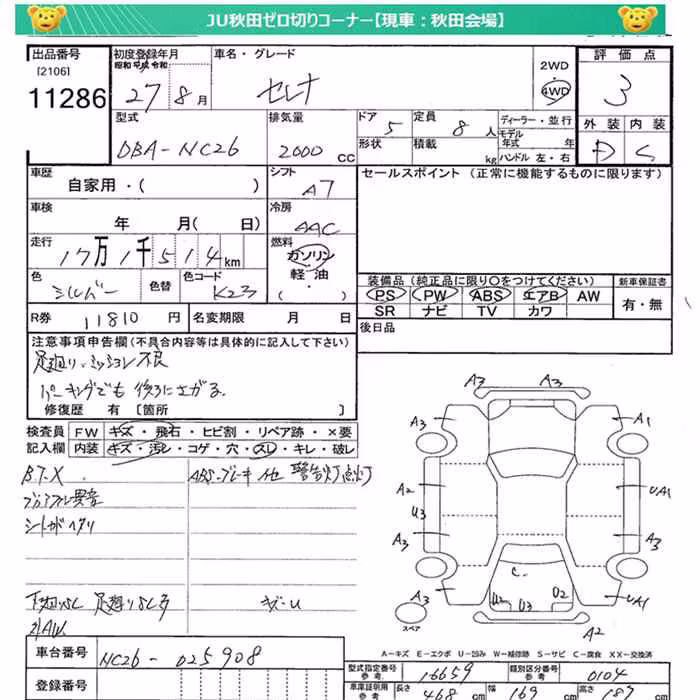 JU秋田ゼロ切りコーナー【現車：秋田会場】
出品番号
[2106]
11286
初度登録年月
昭和 平成 令和
27 8月
車名・グレード
セレナ
2WD
4WD
評価点
3
外装 内装
D C
型式
DBA-NC26
排気量
2000 CC
ドア 5
形状
定員 8人
積載 kg
ディーラー・並行
モデル
年式 年
ハンドル 左・右
車歴
自家用・( )
シフト
A7
セールスポイント (正常に機能するものに限ります)
車検
年 月( 日)
冷房
AAC
走行
17万1千514km
燃料
ガソリン
軽・油
( )
色
シルバー
色替
色コード
K23
装備品 (純正品に限り○をつけてください)
新車保証書
PS PW ABS エアB AW
SR ナビ TV カワ
有・無
R券 11810円
名変期限 月 日
後日品
注意事項申告欄(不具合内容等は具体的に記入して下さい)
足廻り・ミッション不良
パーキングでも後ろにさがる
修復歴 有 [箇所 ]
検査員
記入欄
FW キズ・飛石・ヒビ割・リペア跡・×要
内装 キズ・汚レ・コゲ・穴・スレ・キレ・破レ
B.T.X
ABS・ブレーキ 他 警告灯点灯
シートガヘタリ
下廻りSC 足廻りSC多
キズ・U
外AW
A3 A3
A3 A1
A2 UA1
U3
A3 A3
C
U2 U3 U2
UA1
A2
スペア
A－キズ E－エクボ U－凹み W－補修跡 S－サビ C－腐食 XX－交換済
車台番号
NC26-025908
登録番号
型式指定番号
参考
16659
類別区分番号
参考
0104
車庫証明用
参考
長さ 468 cm
幅 169 cm
高さ 187 cm